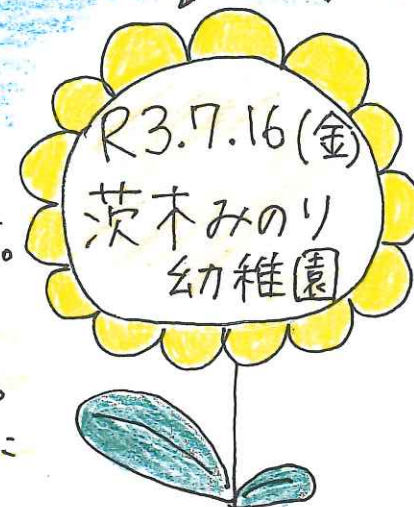 R3.7.16(金)
茨木みのり
幼稚園
。
。
た